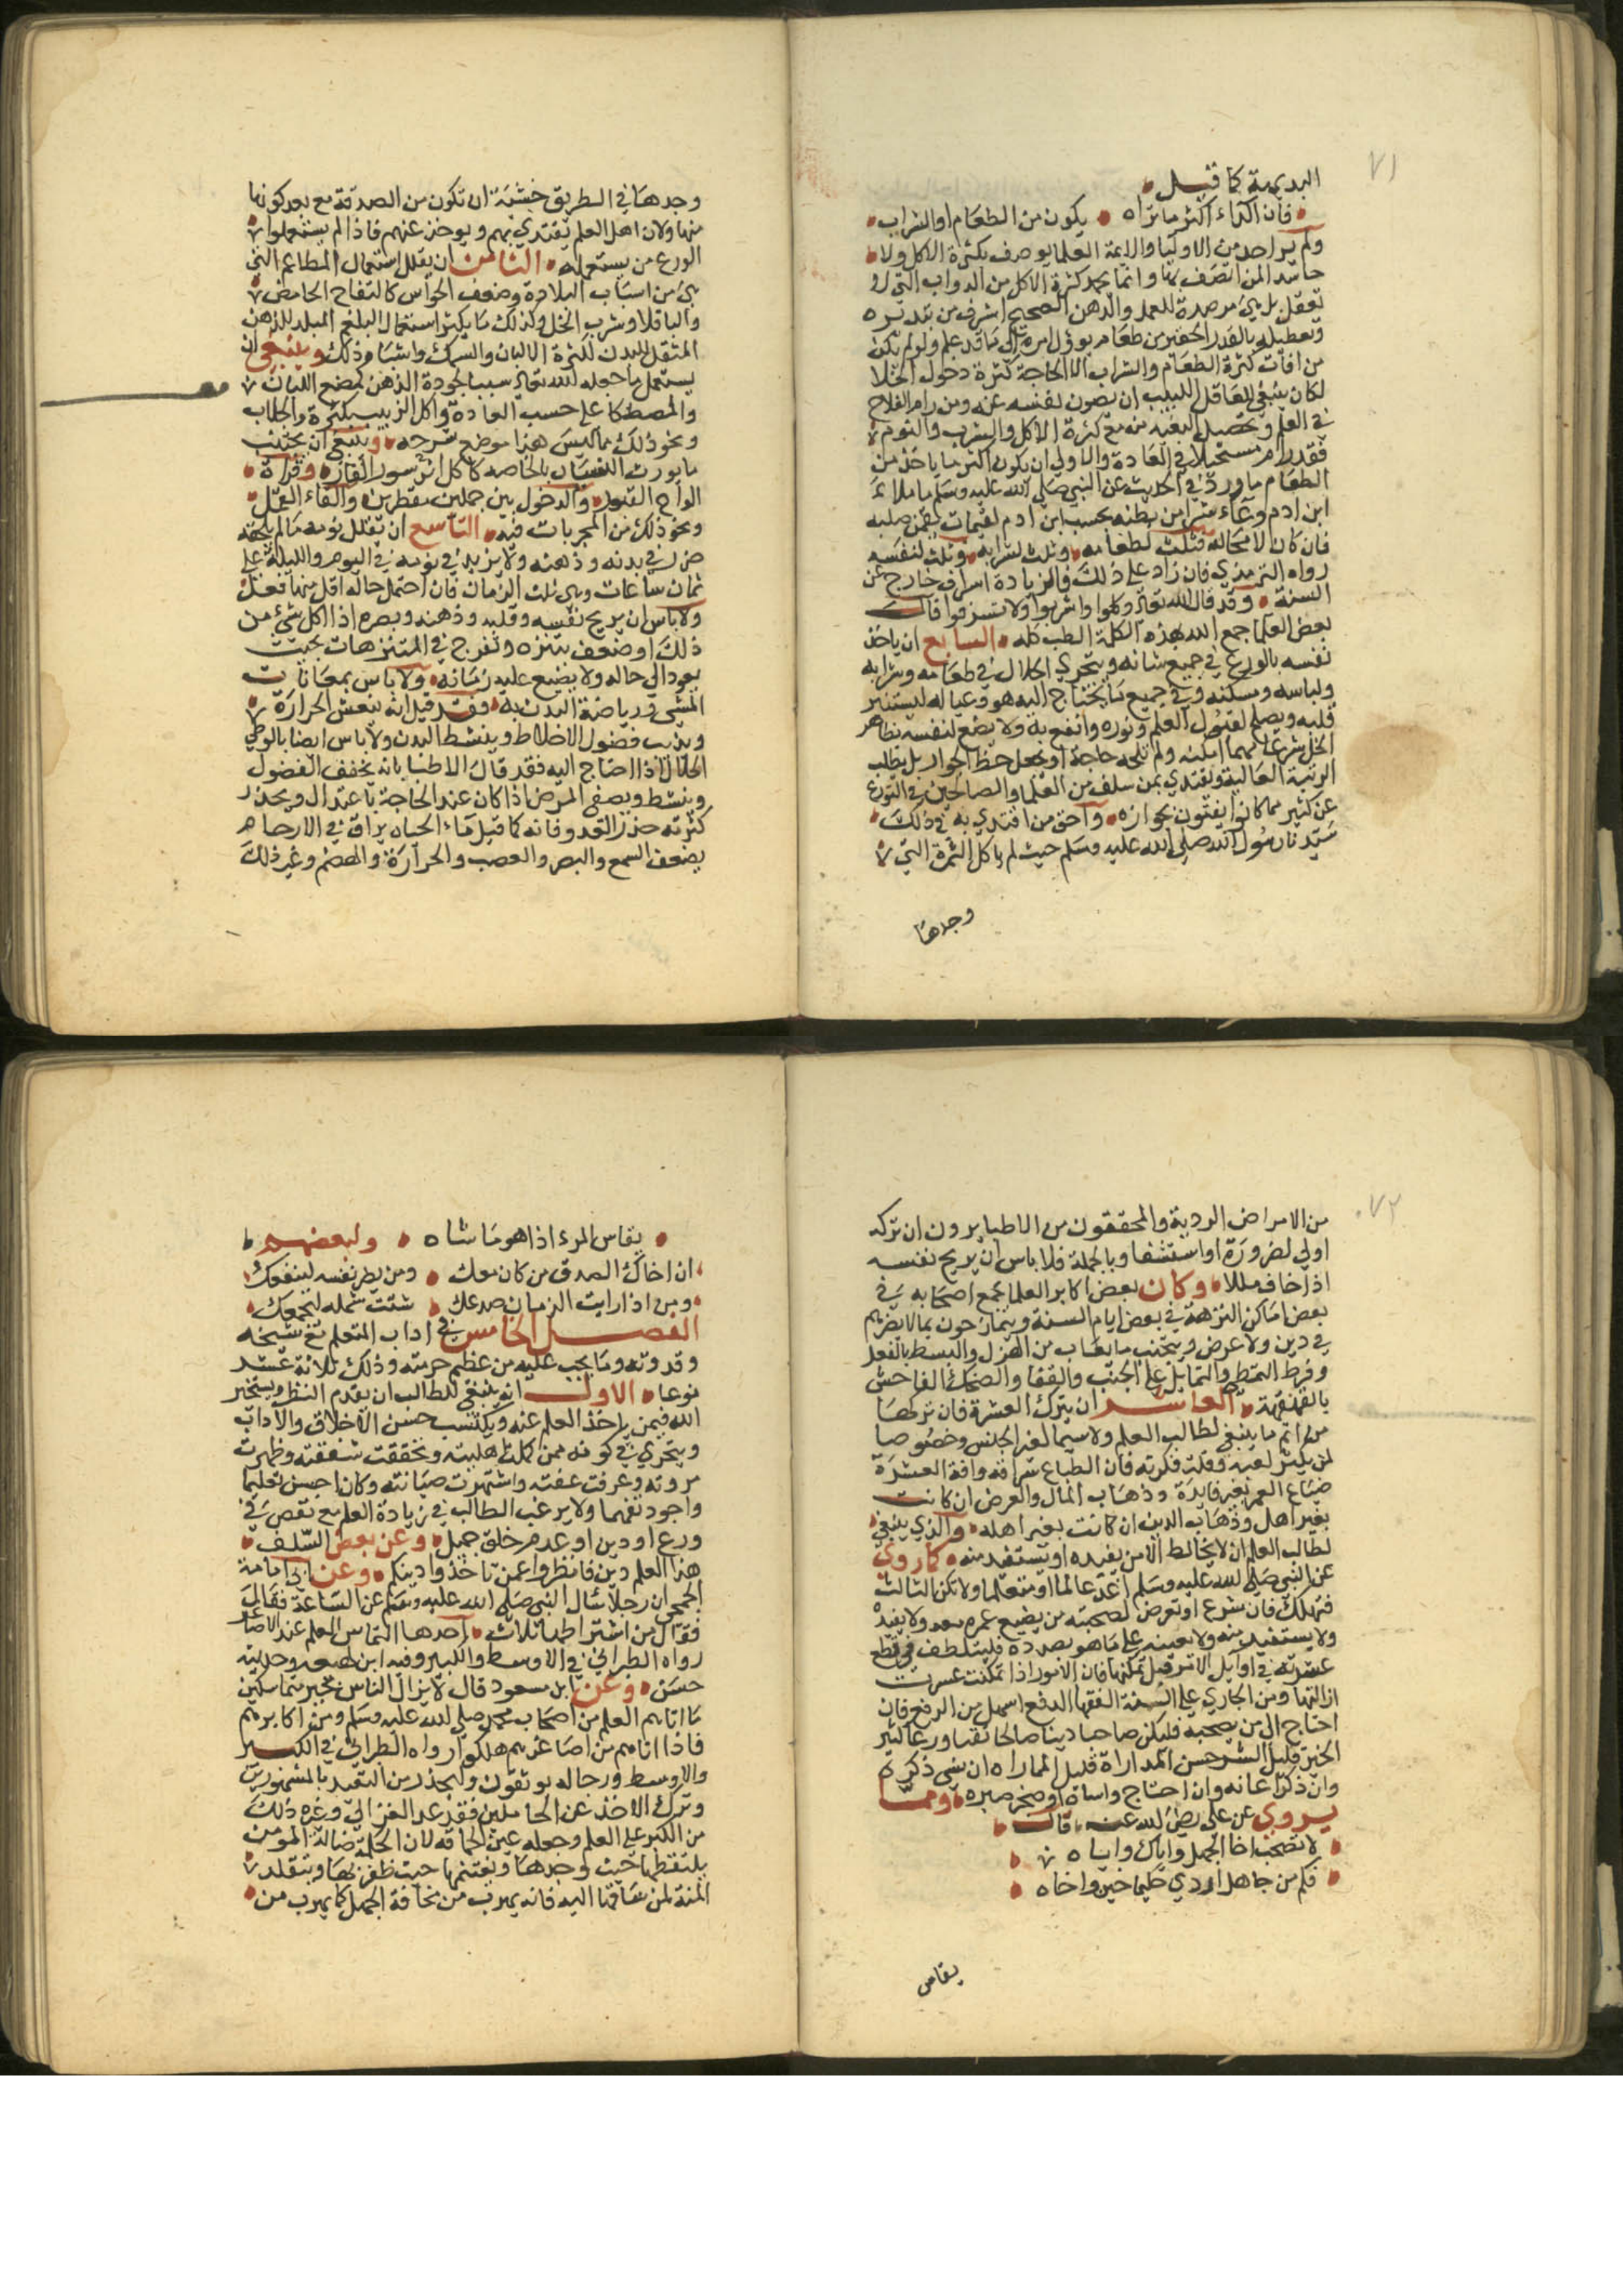 ٧١
البديهة كما قيل
فان الداء اكثر ما تراه يكون من الطعام او الشراب
ولم ير احد من الاوليا والايمة العلما يوصف بكثرة الاكل ولا
حامد لمن اتصف بها وانما يحمد كثرة الاكل من الدواب التي لا
تعقل بل هي مرصدة للعمل والذهن الصحيح اشرف من تبديده
وتعطيله بالقدر الحقير من طعام يوول امره الى ما قد علم ولو لم يكن
من افات كثرة الطعام والشراب الا الحاجة لكثرة دخول الخلا
لكان ينبغي للعاقل اللبيب ان يصون نفسه عنه ومن رام الفلاح
في العلم وتحصيل البغية منه مع كثرة الاكل والشرب والنوم
فقد رام مستحيلا في العادة والاولى ان يكون اكثر ما ياخذ من
الطعام ما ورد في الحديث عن النبي صلى الله عليه وسلم ما ملا
ابن ادم وعاء شرا من بطنه بحسب ابن ادم لقيمات يقمن صلبه
فان كان لا محالة فثلث لطعامه وثلث لشرابه وثلث لنفسه
رواه الترمذي فان زاد على ذلك فالزيادة اسراف خارج عن
السنة وقد قال الله تعالى وكلوا واشربوا ولا تسرفوا قال
بعض العلما جمع الله بهذه الكلمة الطب كله السابع ان ياخذ
نفسه بالورع في جميع شانه ويتحرى الحلال في طعامه وشرابه
ولباسه ومسكنه وفي جميع ما يحتاج اليه هو وعياله ليستنير
قلبه ويصلح لقبول العلم ونوره والنفع به ولا يقنع لنفسه بظاهر
الحل شرعا مهما امكنه ولم تلجه حاجة او يجعل حظه الجواز بل يطلب
الرتبة العالية ويقتدي بمن سلف من العلما والصالحين في التورع
عن كثير مما كانوا يفتون بجوازه واحق من اقتدي به في ذلك
سيدنا رسول الله صلى الله عليه وسلم حيث لم ياكل التمرة التي
وجدها
وجدها في الطريق خشية ان تكون من الصدقة مع بعد كونها
منها ولان اهل العلم يقتدي بهم ويوخذ عنهم فاذا لم يستعملوا
الورع من يستعمله الثامن ان يقلل استعمال المطاعم التي
هي من اسباب البلادة وضعف الحواس كالتفاح الحامض
والباقلا وشرب الخل وكذلك ما يكثر استعمال البلغم المبلد للذهن
المثقل للبدن لكثرة الالبان والسمك واشباه ذلك وينبغي ان
يستعمل ما جعله الله تعالى سببا لجودة الذهن كمضغ اللبان
والمصطكا على حسب العادة واكل الزبيب بكثرة والجلاب
ونحو ذلك مما ليس هذا موضع شرحه وينبغي ان يجتنب
ما يورث النسيان بالخاصه كاكل اثر سور الفار وقراة
الواح القبور والدخول بين جملين مقطرين والقاء القمل
ونحو ذلك من المجربات فيه التاسع ان يقلل نومه ما لم يلحقه
ضرر في بدنه وذهنه ولا يزيد في نومه في اليوم والليلة على
ثمان ساعات وهي ثلث الزمان فان احتمل حاله اقل منها فعل
ولا باس ان يريح نفسه وقلبه وذهنه وبصره اذا كل شيء من
ذلك او ضعف بتنزه وتفرج في المتنزهات بحيث
يعود الى حاله ولا يضيع عليه زمانه ولا باس بمعانات
المشي ورياضة البدن به فقد قيل انه ينعش الحرارة
ويذيب فضول الاخلاط وينشط البدن ولا باس ايضا بالوطي
الحلال اذا احتاج اليه فقد قال الاطبا بانه يخفف الفضول
وينشط ويصفي المرض اذا كان عند الحاجة باعتدال ويحذر
كثرته حذر العدو فانه كما قيل ماء الحياه يراق في الارحام
يضعف السمع والبصر والعصب والحرارة والهضم وغير ذلك
٧٢
من الامراض الردية والمحققون من الاطبا يرون ان تركه
اولى لضرورة او استشفا وبالجملة فلا باس ان يريح نفسه
اذا خاف مللا وكان بعض اكابر العلما يجمع اصحابه في
بعض اماكن التنزهة في بعض ايام السنة ويتمازحون بما لا يضرهم
في دين ولا عرض ويتجنب ما يعاب من الهزل والبسط بالفعل
وفرط التمطي والتمايل على الجنب والقفا والضحك الفاحش
بالقهقهة العاشر ان يترك العشرة فان تركها
من اهم ما ينبغي لطالب العلم ولا سيما لغير الجنس وخصوصا
لمن يكثر لعبه وقلت فكرته فان الطباع سراقه وافة العشرة
ضياع العمر بغير فايدة وذهاب المال والعرض ان كانت
بغير اهل وذهاب الدين ان كانت بغير اهله والذي ينبغي
لطالب العلم ان لا يخالط الا من يفيده او يستفيد منه كما روي
عن النبي صلى الله عليه وسلم اغد عالما او متعلما ولا تكن الثالث
فتهلك فان شرع او تعرض لصحبته من يضيع عمره معه ولا يفيده
ولا يستفيد منه ولا يعينه على ما هو بصدده فليتلطف في قطع
عشرته في اوايل الامر قبل تمكنها فان الامور اذا تمكنت عسرت
ازالتها ومن الجاري على السنة الفقها الدفع اسهل من الرفع فان
احتاج الى من يصحبه فليكن صاحبا دينا صالحا تقيا ورعا كثير
الخير قليل الشر حسن المداراة قليل المماراه ان نسي ذكره
وان ذكر اعانه وان احتاج واساه او ضجر صبره ومما
يروى عن علي رضي الله عنه قال
لا تصحب اخا الجهل واياك واياه
فكم من جاهل اردى حليما حين واخاه
يقاس
يقاس المرء اذا هو ما شاه ولبعضهم
ان اخاك الصدق من كان معك ومن يضر نفسه لينفعك
ومن اذا رايت الزمان صدعك شتت شمله ليجمعك
الفصل الخامس في اداب المتعلم مع شيخه
وقدوته وما يجب عليه من عظم حرمته وذلك ثلاثة عشر
نوعا الاول انه ينبغي للطالب ان يقدم النظر ويستخير
الله فيمن ياخذ العلم عنه ويكتسب حسن الاخلاق والاداب
ويتحرى في كونه ممن كملت اهليته وتحققت شفقته وظهرت
مروته وعرفت عفته واشتهرت صيانته وكان احسن تعليما
واجود تفهما ولا يرغب الطالب في زيادة العلم مع نقص في
ورع او دين او عدم خلق جميل وعن بعض السلف
هذا العلم دين فانظروا عمن تاخذوا دينكم وعن ابي امامة
الجمحي ان رجلا سال النبي صلى الله عليه وسلم عن الساعة فقال
فقال من اشتراطها ثلاث احدها التماس العلم عند الاصاغر
رواه الطبراني في الاوسط والكبير وفيه ابن لهيعه وحديثه
حسن وعن ابن مسعود قال لا يزال الناس بخير متماسكين
ما اتاهم العلم من اصحاب محمد صلى الله عليه وسلم ومن اكابرهم
فاذا اتاهم من اصاغرهم هلكوا رواه الطبراني في الكبير
والاوسط ورجاله موثقون وليحذر من التقيد بالمشهورين
وترك الاخذ عن الخاملين فقد عد الغزالي وغيره ذلك
من الكبر على العلم وجعله عين الحماقه لان الحكمة ضالة المومن
يلتقطها حيث وجدها ويغتنمها حيث ظفر بها ويتقلد
المنة لمن ساقها اليه فانه يهرب من مخافة الجهل كما يهرب من